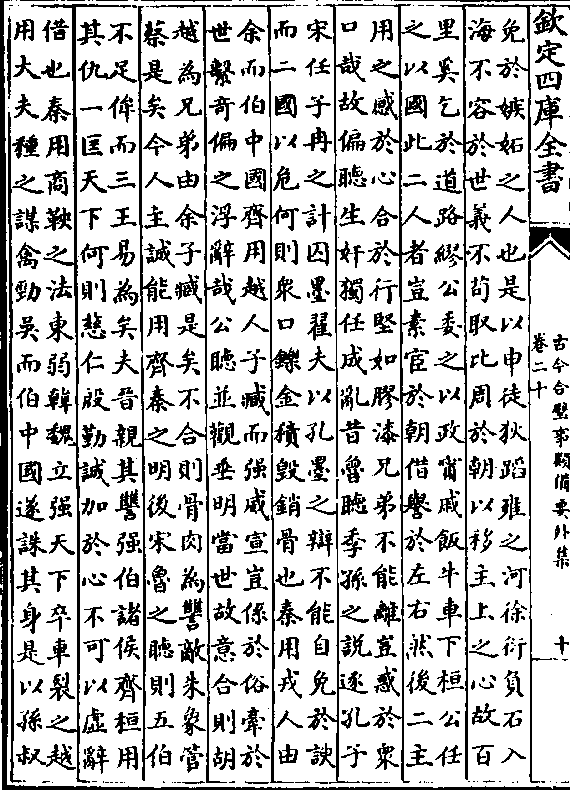 欽定四庫全書
古今合璧事類備要外集
卷二十
十
免於嫉妬之人也是以申徒狄蹈雍之河徐衍負石入
海不容於世義不苟取比周於朝以移主上之心故百
里奚乞於道路繆公委之以政甯戚飯牛車下桓公任
之以國此二人者豈素宦於朝借譽於左右然後二主
用之感於心合於行堅如膠漆兄弟不能離豈惑於衆
口哉故偏聽生奸獨任成亂昔魯聽季孫之說逐孔子
宋任子冉之計囚墨翟夫以孔墨之辯不能自免於諛
而二國以危何則衆口鑠金積毀銷骨也秦用戎人由
余而伯中國齊用越人子臧而强威宣豈係於俗牽於
世繫奇偏之浮辭哉公聽並觀垂明當世故意合則胡
越為兄弟由余子臧是矣不合則骨肉為讐敵朱象管
蔡是矣今人主誠能用齊秦之明後宋魯之聽則五伯
不足侔而三王易為矣夫晉親其讐强伯諸侯齊桓用
其仇一匡天下何則慈仁殷勤誠加於心不可以虚辭
借也秦用商鞅之法東弱韓魏立强天下卒車裂之越
用大夫種之謀禽勁吳而伯中國遂誅其身是以孫叔